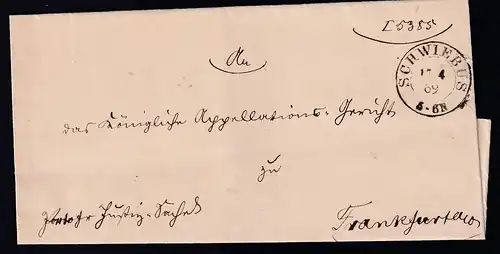 E5385
An
SCHWIEBUS
17 4
69
5-6N
das Königliche Appellations-Gericht
zu
Frankfurt a/O
Portofr Justiz-Sache